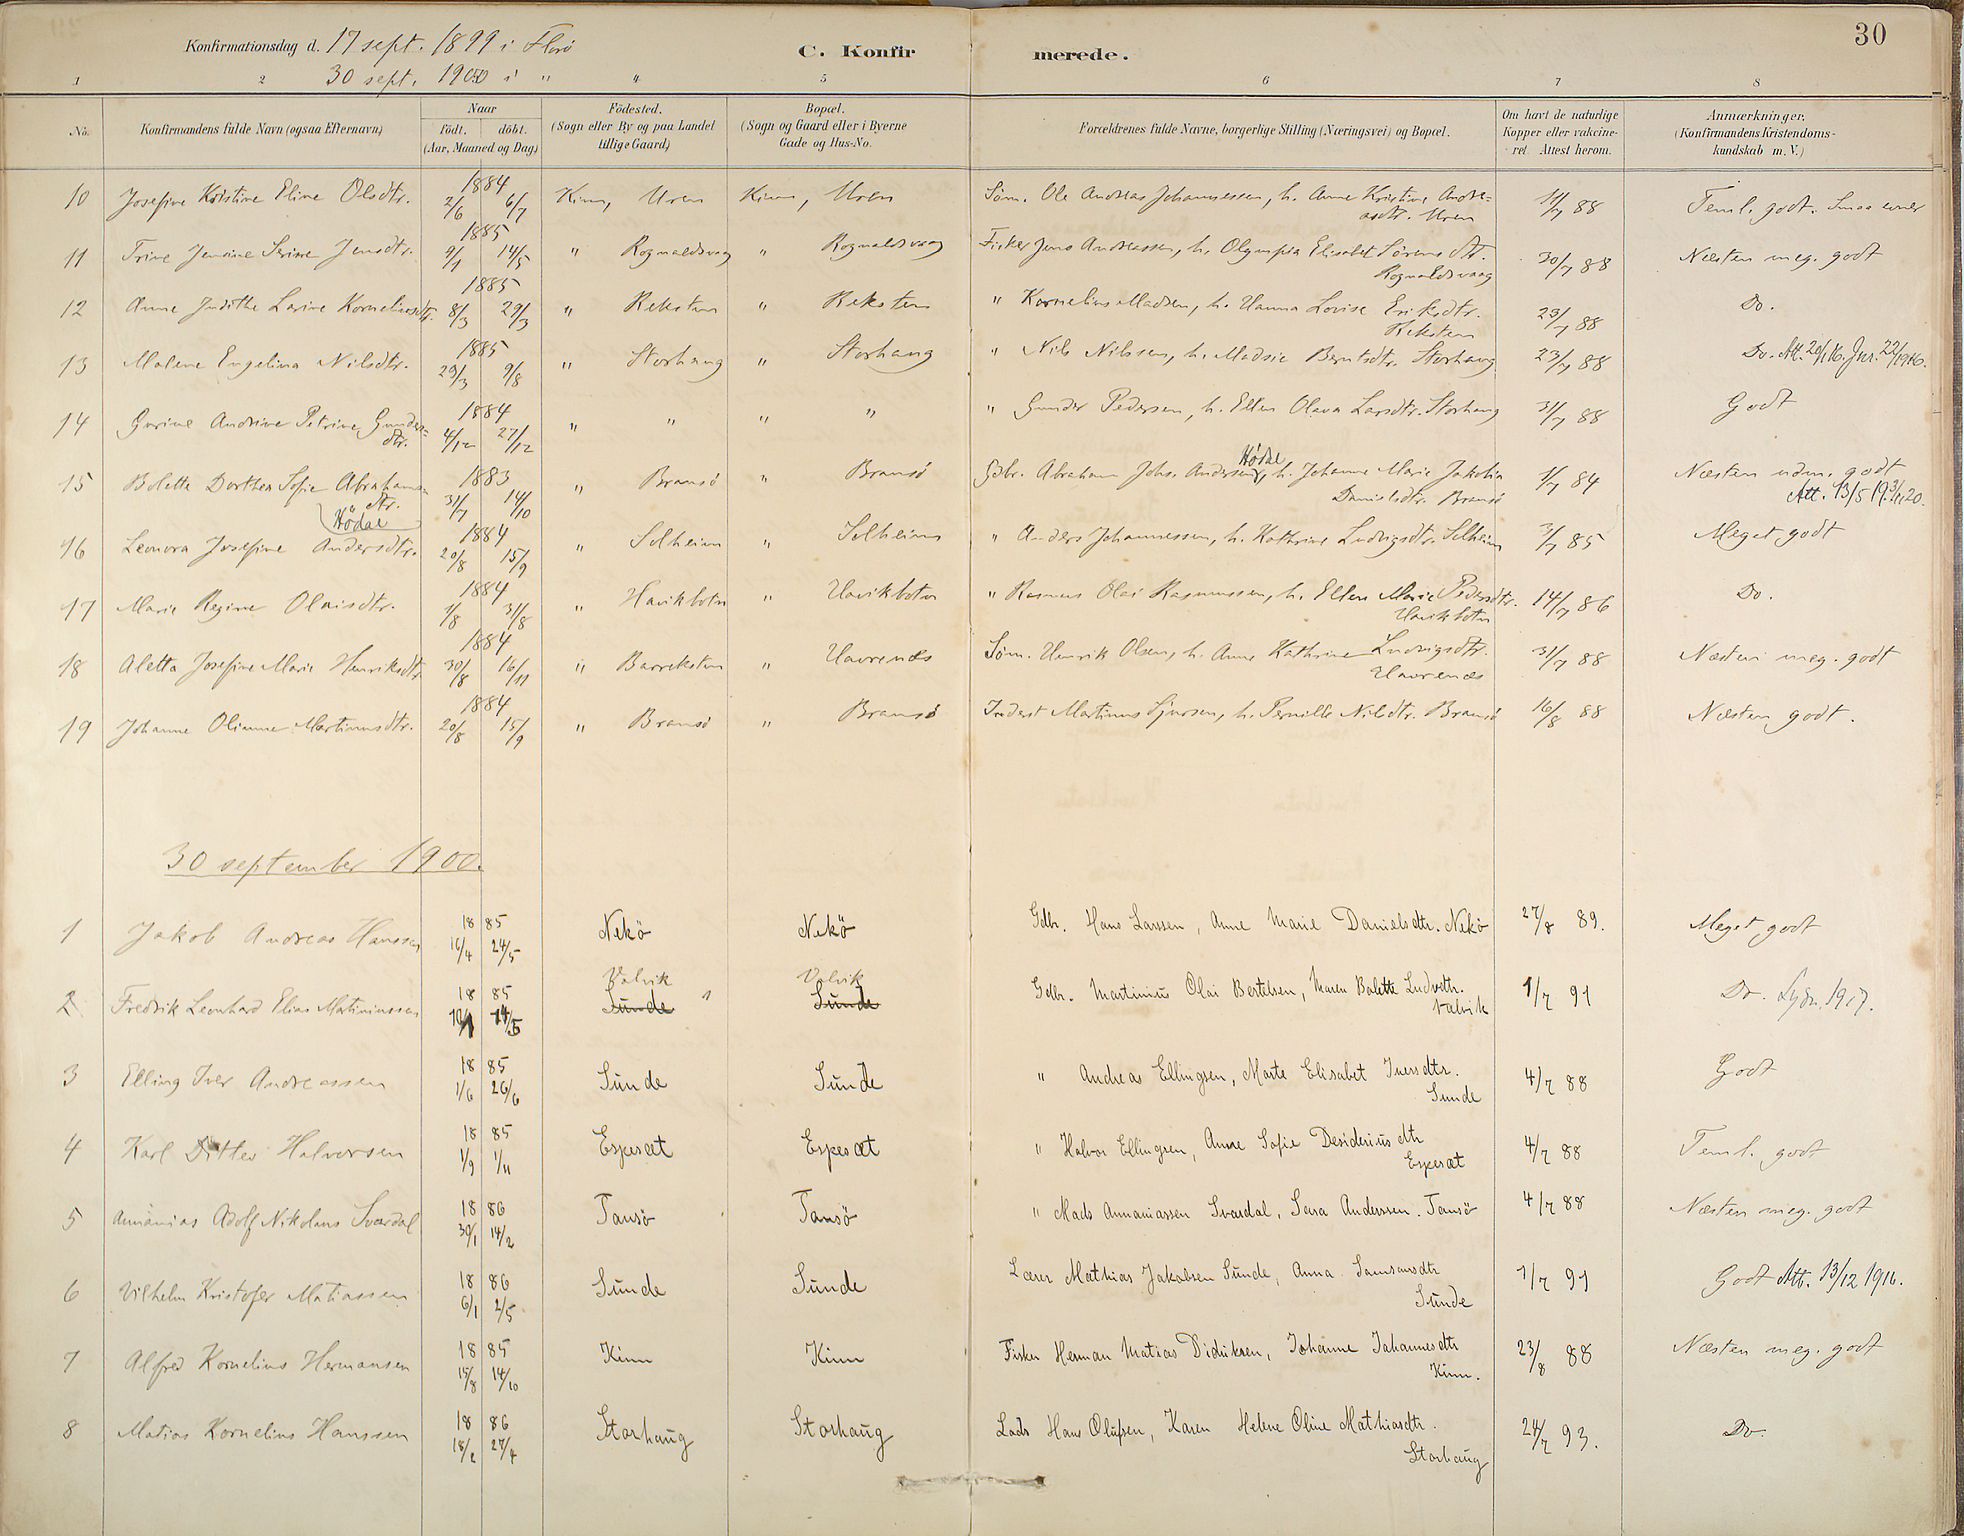 Konfirmationsdag d. 17 sept. 1899 i Florö
30 sept. 1900 i "
C. Konfirmerede.
30
1 2 4 5 6 7 8
No. Konfirmandens fulde Navn (ogsaa Efternavn) Naar födt. döbt. (Aar, Maaned og Dag) Födested. (Sogn eller By og paa Landet tillige Gaard) Bopæl. (Sogn og Gaard eller i Byerne Gade og Hus-No. Forældrenes fulde Navne, borgerlige Stilling (Næringsvei) og Bopæl. Om havt de naturlige Kopper eller vakcineret. Attest herom. Anmærkninger. (Konfirmandens Kristendomskundskab m. V.)
10 Josefine Kristine Eline Olsdtr. 1884 2/6 6/7 Kinn, Uren Kinn, Uren Søm. Ole Andreas Johannessen, h. Anne Kristine Andreasdtr. Uren 14/7 88 Teml. godt. Smaa evner
11 Trine Jensine Serine Jensdtr. 1885 9/1 14/5 " Rognaldsvaag " Rognaldsvaag Fisker Jens Andreassen, h. Olympia Elisabet Sörensdtr. Rognaldsvaag 30/7 88 Næsten meg. godt
12 Anne Judithe Larine Korneliusdtr. 1885 8/3 29/3 " Reksten " Reksten " Kornelius Madsen, h. Hanna Lovise Eriksdtr. Reksten 23/7 88 Do.
13 Malene Engelina Nilsdtr. 1885 29/3 9/8 " Storhaug " Storhaug " Nils Nilssen, h. Madsie Berntsdtr. Storhaug 23/7 88 Do. Att. 20/1 16.
14 Gurine Andrine Petrine Gundersdtr. 1884 4/12 27/12 " " " " " Gunder Pedersen, h. Ellen Olava Larsdtr. Storhaug 31/7 88 Godt
15 Bolette Dorthea Sofie Abrahamsdtr. Hödal 1883 31/7 14/10 " Bransö " Bransö Gdbr. Abraham Johs. Andersen Hödal, h. Johanne Marie Jakobin Danielsdtr. Bransö 1/7 84 Næsten udm. godt Att. 13/5 19.
16 Leonora Josefine Andersdtr. 1884 20/8 15/9 " Solheim " Solheim " Anders Johannessen, h. Kathrine Ludvigsdtr. Solheim 3/7 85 Meget godt
17 Marie Regine Olaisdtr. 1884 1/8 31/8 " Havikbotn " Havikbotn " Rasmus Olai Rasmussen, h. Ellen Marie Pedersdtr. Havikbotn 14/7 86 Do.
18 Aletta Josefine Marie Henriksdtr 1884 30/8 16/11 " Barreksten " Havrenæs Søm. Henrik Olsen, h. Anne Kathrine Ludvigsdtr. Havrenæs 31/7 88 Næsten meg. godt
19 Johanne Olianne Martinusdtr. 1884 20/8 15/9 " Bransö " Bransö Inderst Martinus Sjursen, h. Pernille Nilsdtr. Bransö 16/8 88 Næsten godt.
30 september 1900.
1 Jakob Andreas Hanssen 1885 16/4 24/5 Nekö Nekö Gdbr. Hans Larssen, Anne Marie Danielsdtr. Nekö 27/8 89. Meget godt
2 Fredrik Leonhard Elias Martinussen 1885 14/5 Valvik Sunde Valvik Sunde Gdbr. Martinius Olai Bertelsen, Maren Bolette Ludvdtr. Valvik 1/7 91 Do. Lysn. 1917.
3 Elling Iver Andreassen 1885 1/6 26/6 Sunde Sunde " Andreas Ellingsen, Marte Elisabet Iversdtr. Sunde 4/7 88 Godt
4 Karl Ditlev Halvorsen 1885 1/9 1/11 Espesæt Espesæt " Halvor Ellingsen, Anne Sofie Desideriusdtr Espesæt 4/7 88 Teml. godt
5 Annanias Adolf Nikolaus Svardal 1886 30/1 14/2 Tansö Tansö " Mads Annaniassen Svardal, Sara Anderssen. Tansö 4/7 88 Næsten meg. godt
6 Vilhelm Kristofer Matiassen 1886 6/1 2/5 Sunde Sunde Lærer Mathias Jakobsen Sunde, Anna Samsonsdtr Sunde 1/7 91 Godt Att. 13/12 1916.
7 Alfred Kornelius Hermansen 1885 15/8 14/10 Kinn Kinn Fisker Herman Matias Didriksen, Johanne Johannesdtr Kinn. 23/8 88 Næsten meg. godt
8 Matias Kornelius Hanssen 1886 18/2 27/4 Storhaug Storhaug Lods Hans Olufsen, Karen Helene Oline Mathiasdtr. Storhaug 24/7 93. Do.